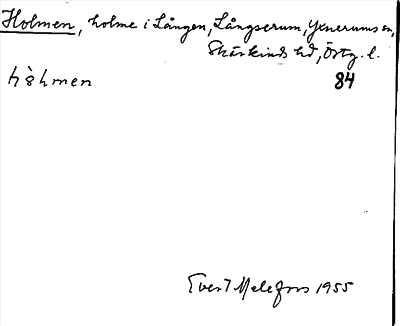 Holmen, holme i Lången, Långserum, Yxnerums sn,
Skärkinds hd, Östg. l.
hòhmen 84
Evert Melefors 1955